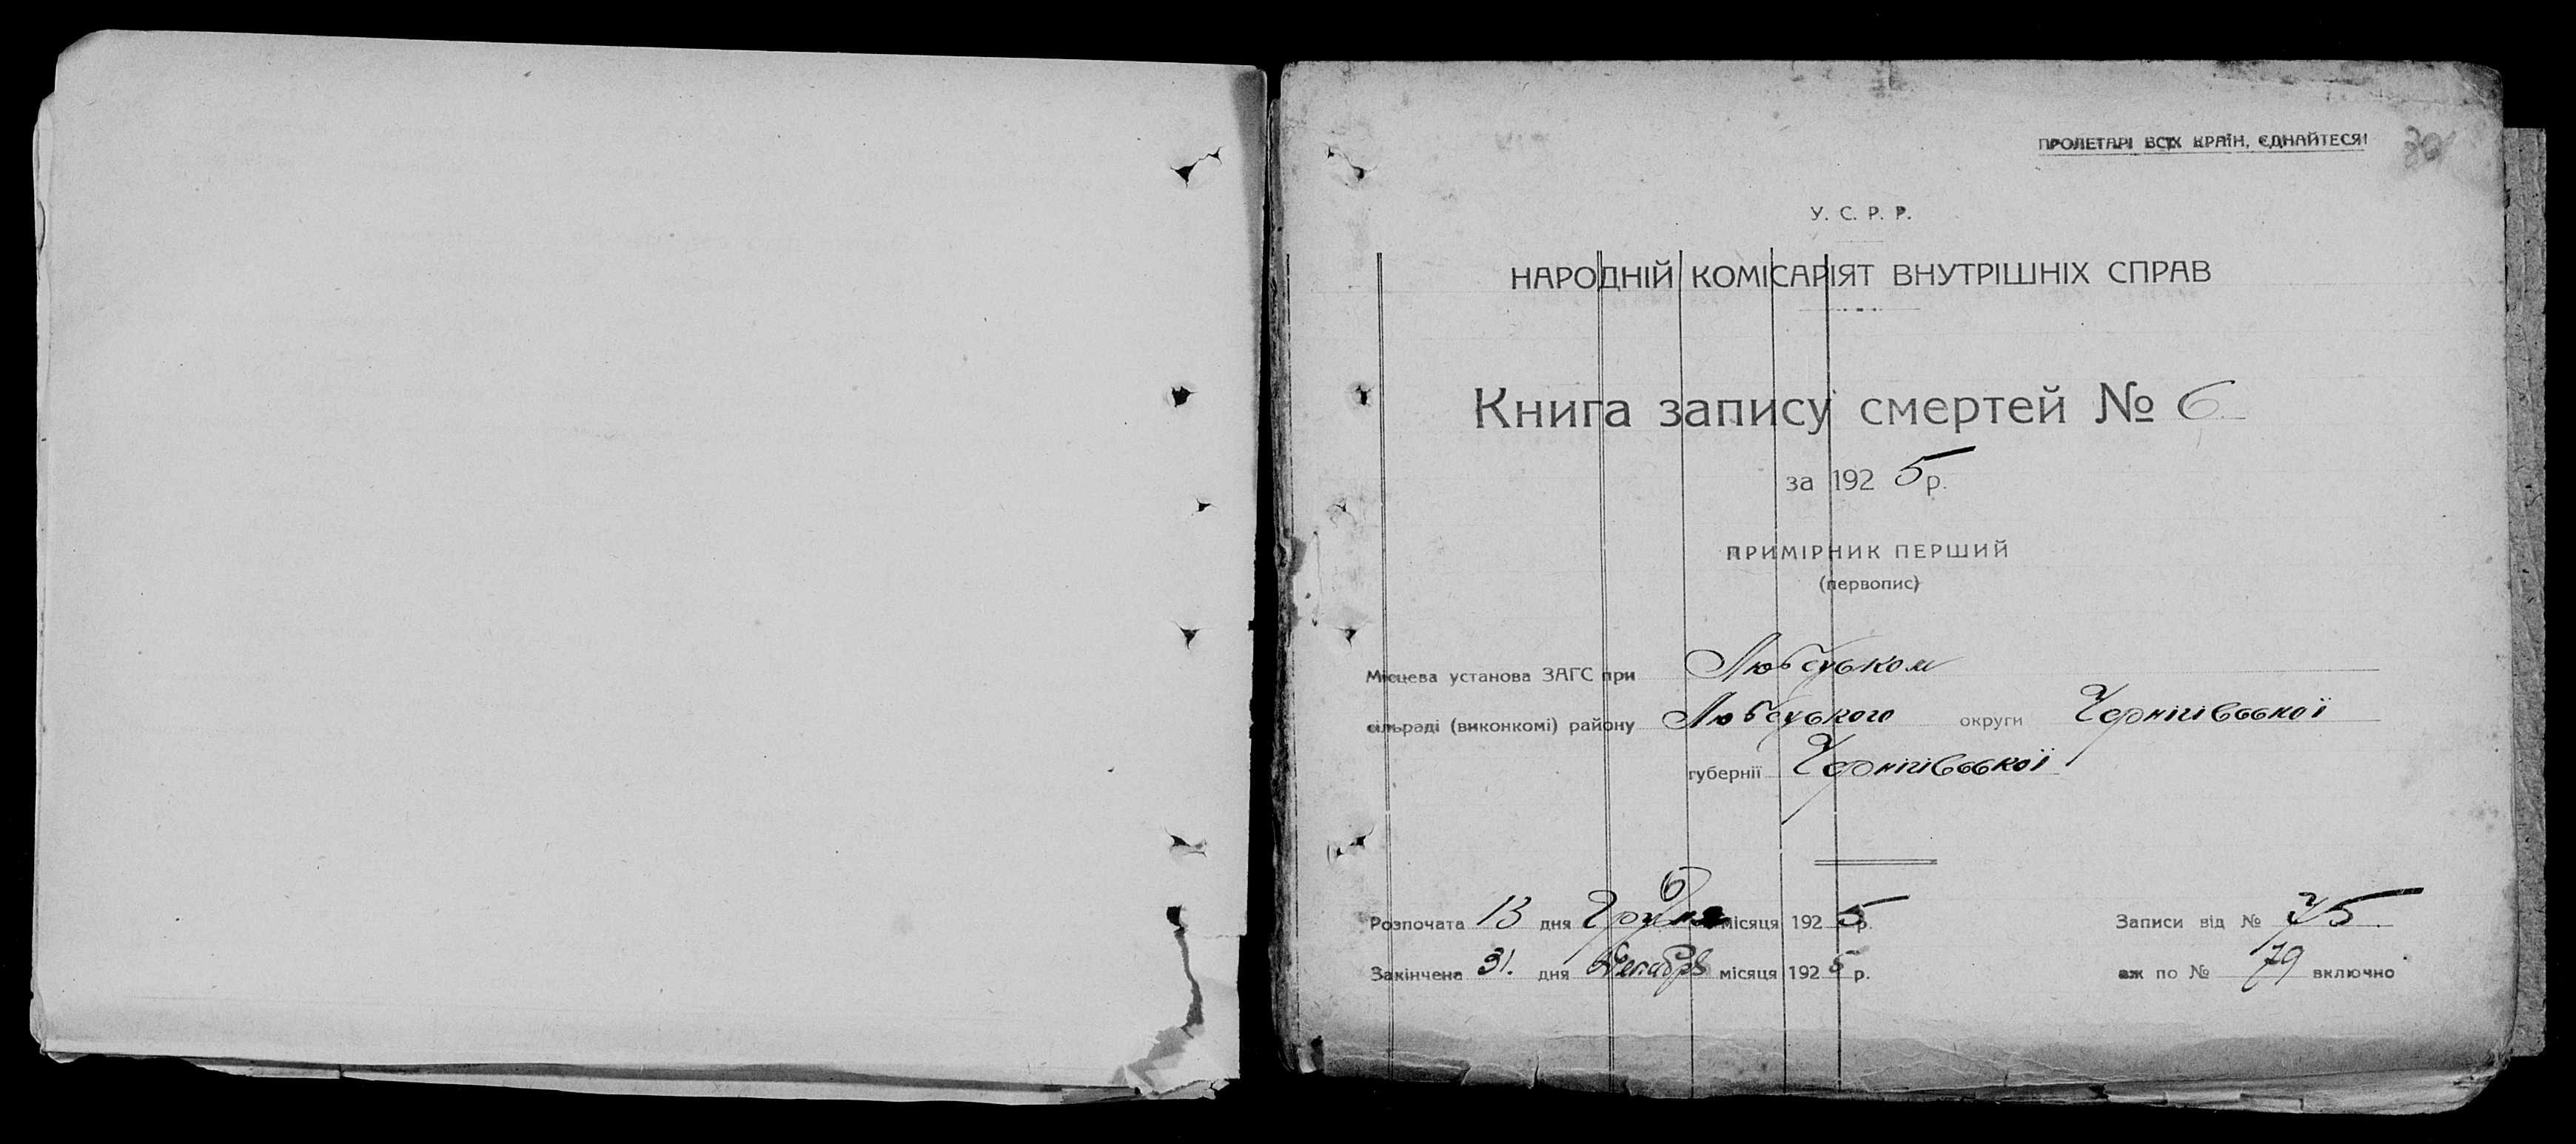 ПРОЛЕТАРІ ВСІХ КРАЇН, ЄДНАЙТЕСЯ!
У. С. Р. Р.
НАРОДНІЙ КОМІСАРІЯТ ВНУТРІШНІХ СПРАВ
Книга запису смертей № 6
за 1925 р.
ПРИМІРНИК ПЕРШИЙ
(первопис)
Місцева установа ЗАГС при
сільраді (виконкомі) району округи Чернігівської
губернії Чернігівської
Розпочата 13 дня Грудня місяця 1925 р. Записи від № 75
Закінчена 31. дня місяця 1925 р. аж по № 79 включно